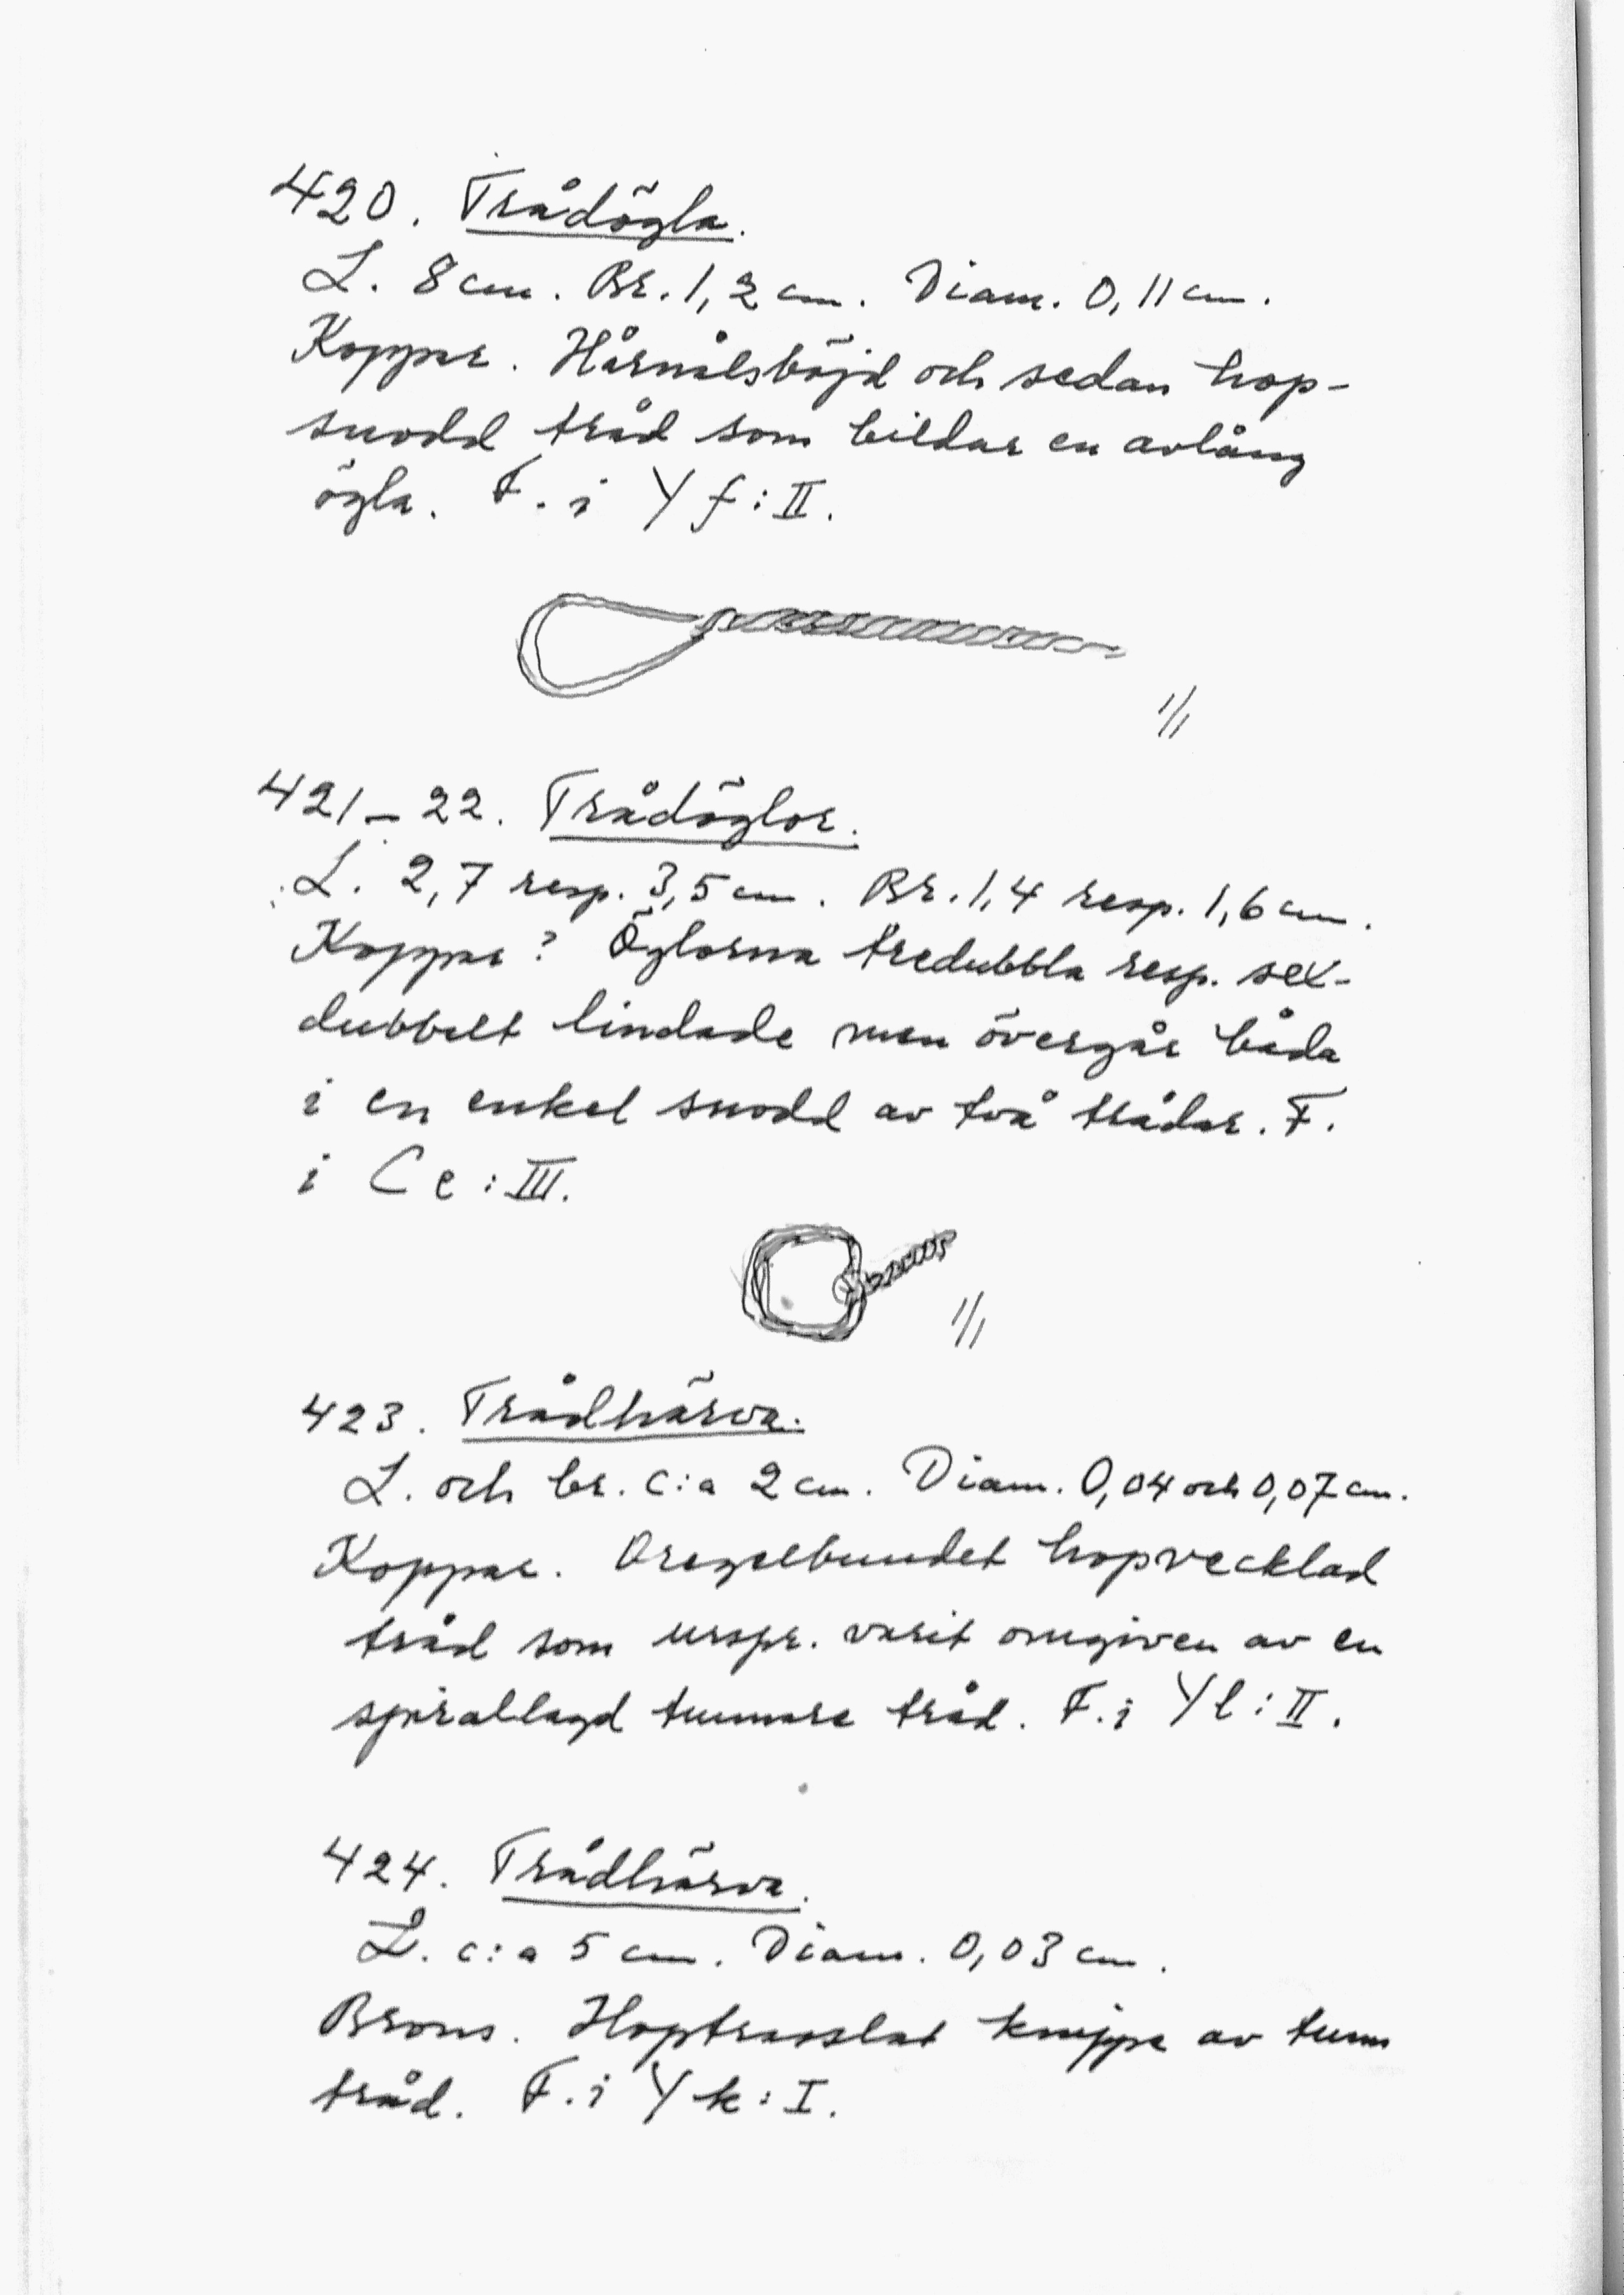 420. Trådögla.
L. 8 cm. Br. 1,2 cm. Diam. 0,11 cm.
Koppar. Hårnålsböjd och sedan hop-
snodd tråd som bildar en avlång
ögla. F. i Y f : II.
1/1
421-22. Trådöglor.
L. 2,7 resp. 3,5 cm. Br. 1,4 resp. 1,6 cm.
Koppar? Öglorna tredubbla resp. sex-
dubbelt lindade men övergår båda
i en enkel snodd av två trådar. F.
i C e : III.
1/1
423. Trådhärva.
L. och br. c:a 2 cm. Diam. 0,04 och 0,07 cm.
Koppar. Oregelbundet hopvecklad
tråd som urspr. varit omgiven av en
spirallagd tunnare tråd. F. i Y l : II.
424. Trådhärva.
L. c:a 5 cm. Diam. 0,03 cm.
Brons. Hoptrasslat knippe av tunn
tråd. F. i Y k : I.